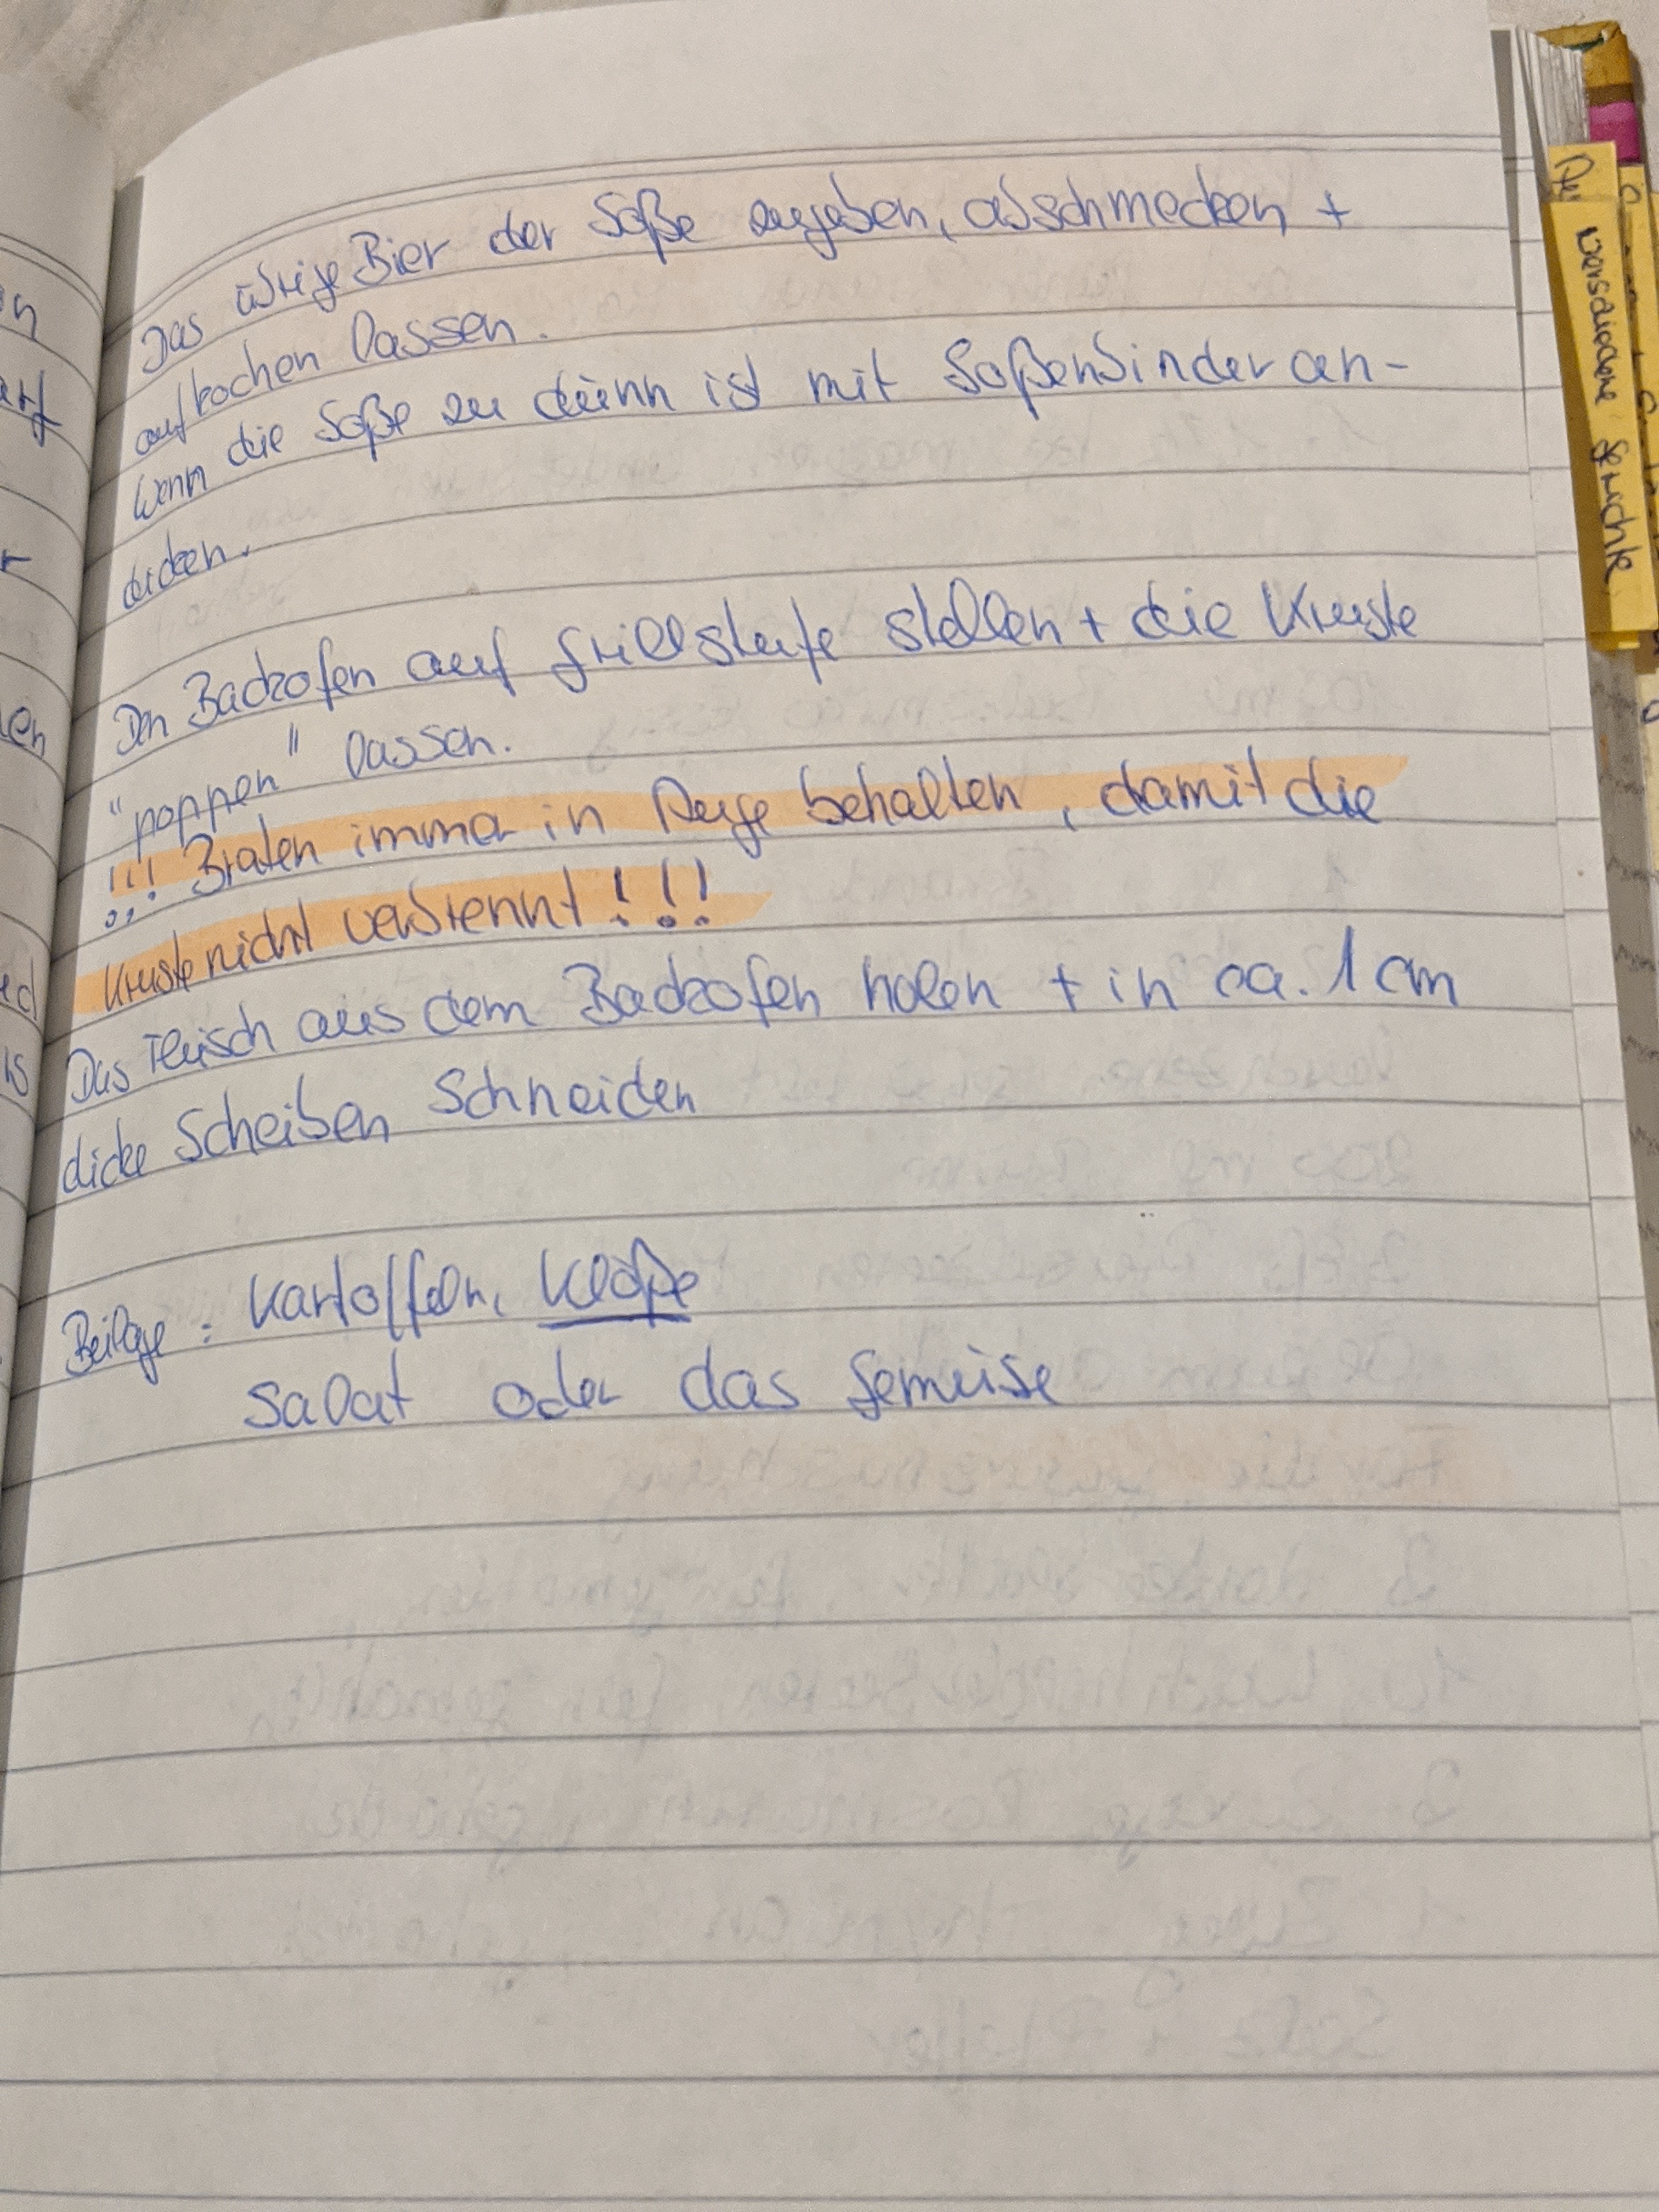 Das übrige Bier der Soße zugeben, abschmecken +
aufkochen lassen.
Wenn die Soße zu dünn ist mit Soßenbinder an-
dicken.
Den Backofen auf Grillstufe stellen + die Kruste
"poppen" lassen.
!!! Braten immer in Auge behalten, damit die
Kruste nicht verbrennt!!!
Das Fleisch aus dem Backofen holen + in ca. 1 cm
dicke Scheiben Schneiden
Beilage : Kartoffeln, Klöße
Salat oder das Gemüse
verschiedene Gerichte